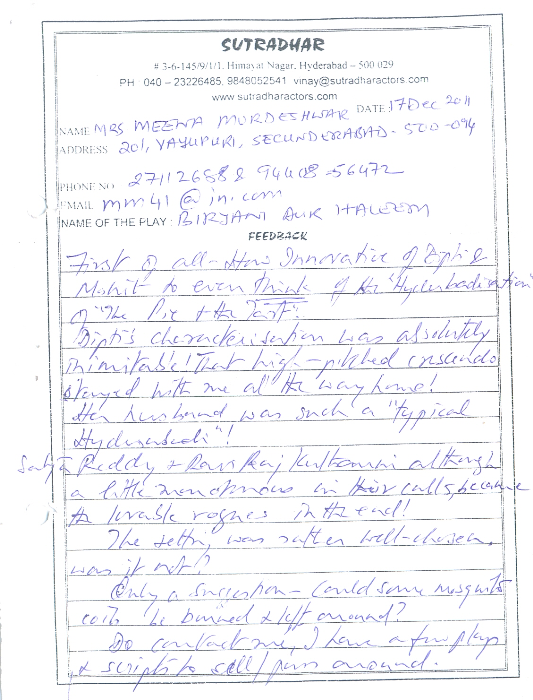 SUTRADHAR
# 3-6-145/9/1/1, Himayat Nagar, Hyderabad – 500 029
PH : 040 – 23226485, 9848052541 vinay@sutradharactors.com
www.sutradharactors.com
DATE 17 Dec 2011
NAME MRS MEENA MURDESHWAR
ADDRESS 201, VAYUPURI, SECUNDERABAD - 500-094
PHONE NO 27112658 & 94408-56472
EMAIL mm41@in.com
NAME OF THE PLAY : BIRJANI AUR HALEEM
FEEDBACK
First of all - How Innovative of Dipti &
Mohit to even think of the "Hyderbadisation"
of "The Pie & the Tart".
Dipti's characterisation was absolutely
inimitable! That high-pitched crescendo
stayed with me all the way home!
Her husband was such a "typical
Hyderabadi"!
Satya Reddy & Ravi Raj Kulkarni although
a little monotonous in their calls, became
the lovable rogues in the end!
The setting was rather well-chosen,
was it not?
Only a suggestion - Could some mosquito
coils be burned & left around?
Do contact me, I have a few plays
& scripts to sell/pass around.